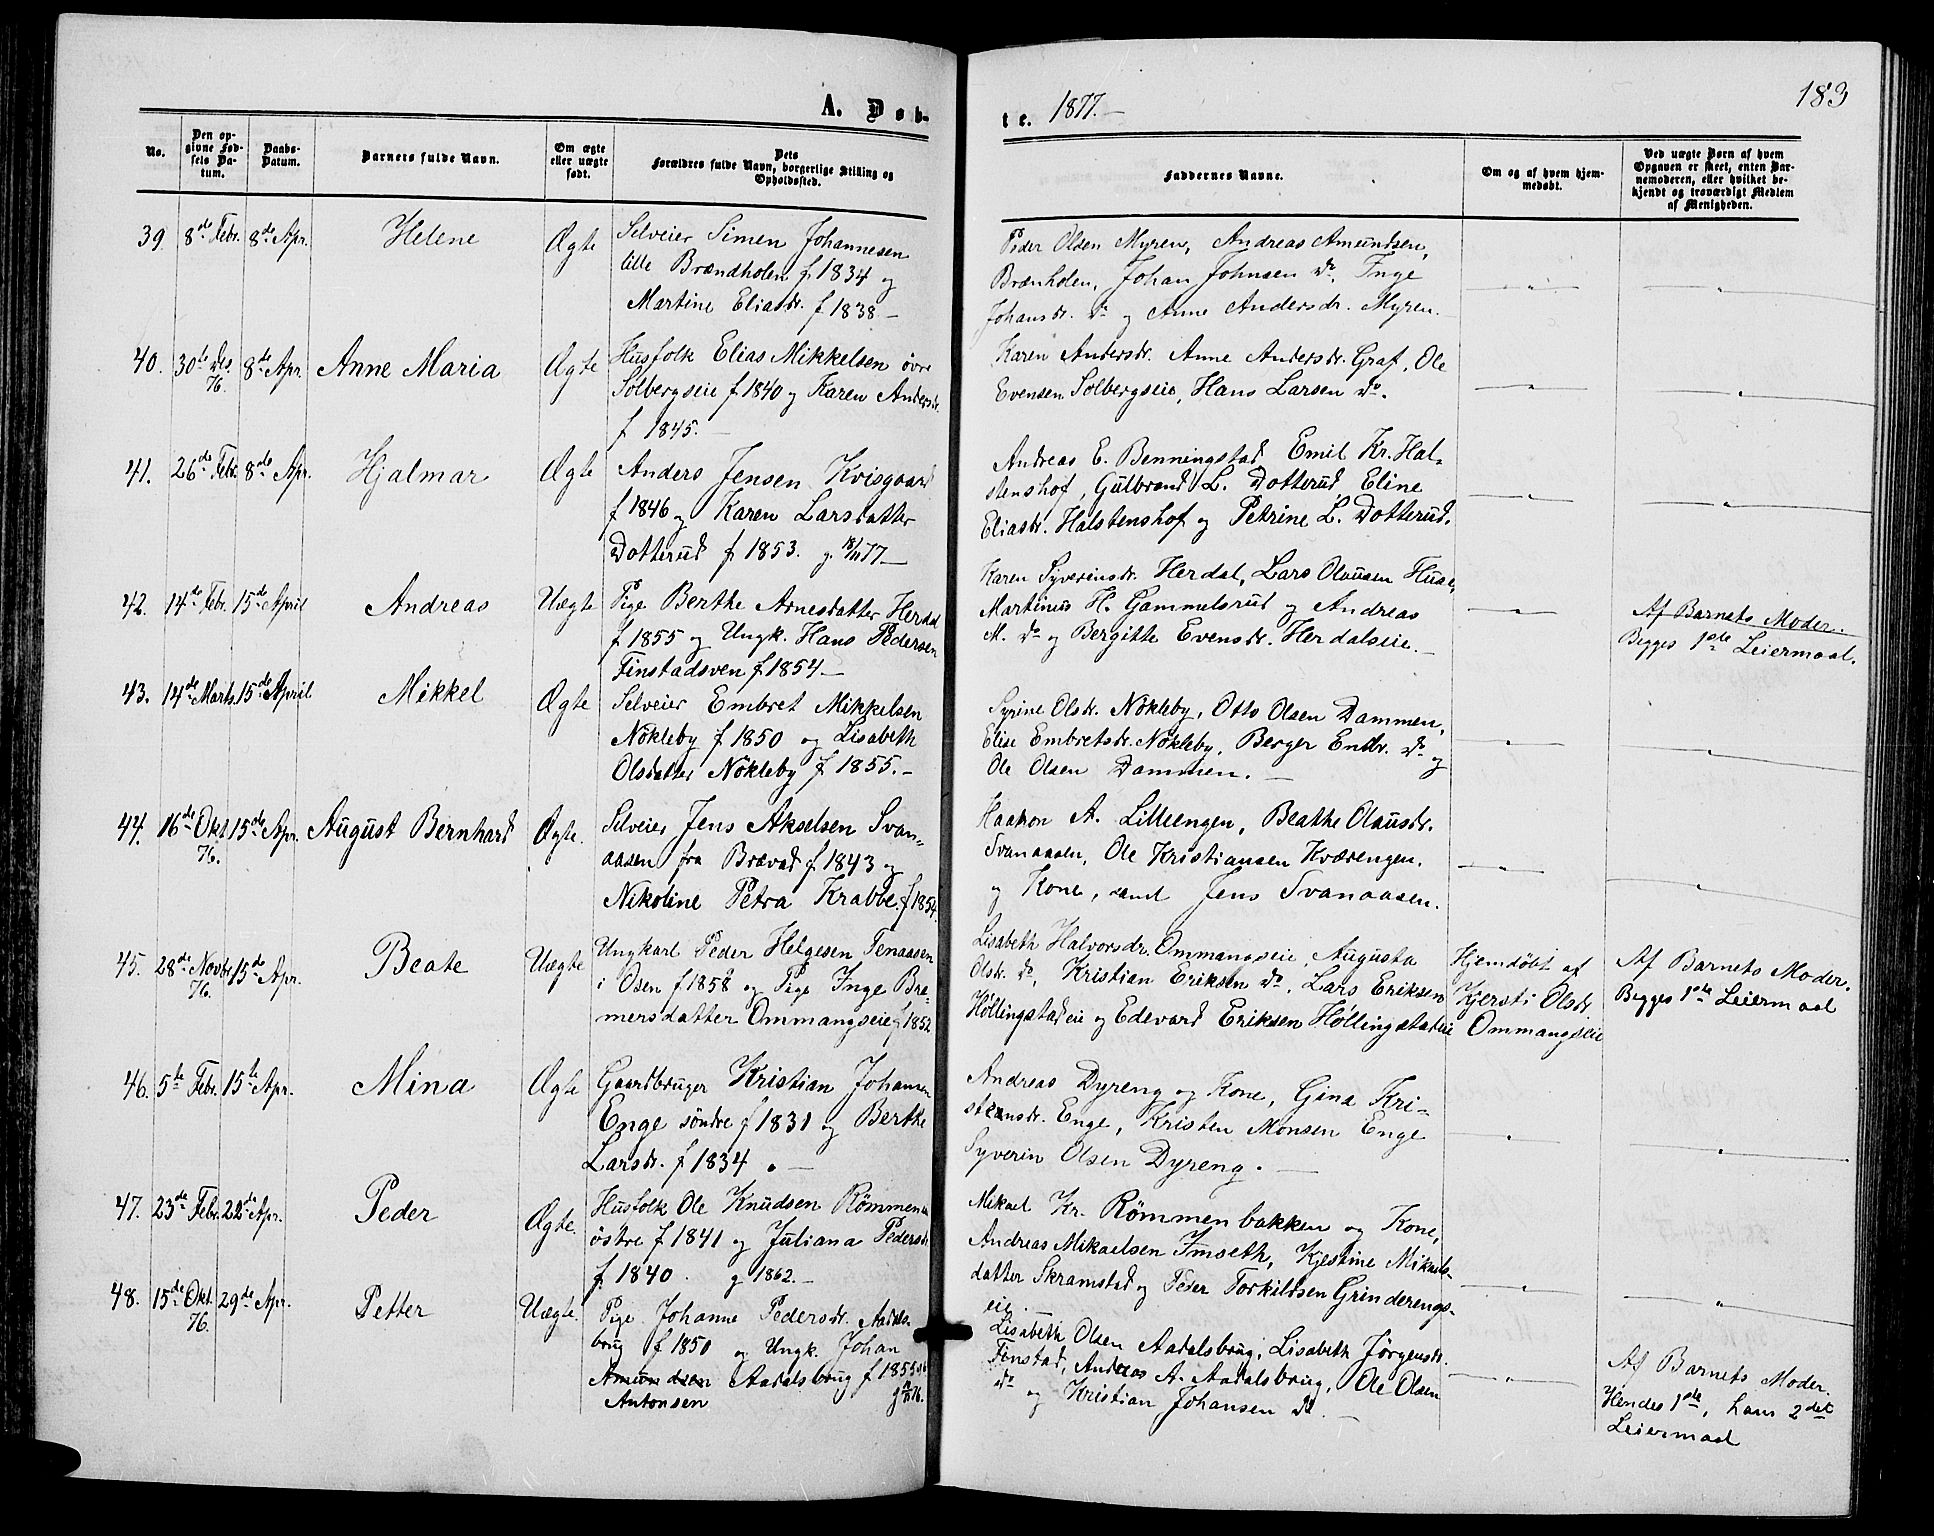 183
A. Døb-
te. 1877.
No.
Den op-
givne Fød-
sels Da-
tum.
Daabs-
Datum.
Barnets fulde Navn.
Om ægte
eller uægte
født.
Dets
Forældres fulde Navn, borgerlige Stilling og
Opholdssted.
Faddernes Navne.
Om og af hvem hjem-
medøbt.
Ved uægte Børn af hvem
Opgaven er skeet, enten Bar-
nemoderen, eller hvilket be-
kjendt og troværdigt Medlem
af Menigheden.
39. 8de Febr. 8de Apr. Helene Ægte
Selveier Simen Johannesen
lille Brændholen f. 1834 og
Martine Eliasdr. f 1838 —
Peder Olsen Myren, Andreas Amundsen,
Brænholen, Johan Johnsen do. Inge
Johansdr. do og Anne Andersdr. Myren.
40. 30te Des. 76. 8de Apr. Anne Maria Ægte
Husfolk Elias Mikkelsen övre
Solbergseie f 1840 og Karen Andersdr.
f 1845. —
Karen Andersdr. Anne Andersdr. Graf, Ole
Evensen Solbergseie, Hans Larsen do.
41. 26de Febr. 8de Apr. Hjalmar Ægte
Anders Jensen Kvisgaard
f 1846 og Karen Larsdatter
Dotterud f 1853. g. 18/11 77 —
Andreas E. Benningstad Emil Kr. Hal-
stenshof, Gulbrand L. Dotterud Eline
Eliasdr. Halstenshof og Petrine L. Dotterud.
42. 14de Febr. 15de April Andreas Uægte
Pige Berthe Arnesdatter Herdal
f 1855 og Ungk. Hans Pedersen
Finstadsven f 1854 —
Karen Syverinsdr. Herdal, Lars Olausen Huse,
Martinus H. Gammelsrud og Andreas
M. do og Bergitte Evensdr. Herdalseie. —
Af Barnets Moder.
Begges 1ste Leiermaal.
43. 14de Marts. 15de April Mikkel Ægte
Selveier Embret Mikkelsen
Nökleby f 1850 og Lisabeth
Olsdatter Nökleby f 1855. —
Syrine Olsdr. Nökleby, Otto Olsen Dammen,
Elise Embretsdr. Nökleby, Berger Endr. do og
Ole Olsen Dammen. —
44. 16de Okt. 76. 15de Apr. August Bernhard Ægte.
Selveier Jens Akselsen Svan-
aasen fra Brævad f 1843 og
Nikoline Petra Krabbe f 1854.
Haakon A. Lilleengen, Beathe Olausdr.
Svanaasen, Ole Kristiansen Kværengen.
og Kone, samt Jens Svanaasen.
45. 28de Novbr. 76. 15de Apr. Beate Uægte
Ungkarl Peder Helgesen Tenaasen
i Osen f 1858 og Pige Inge Bre-
mersdatter Ommangseie f 1852
Lisabeth Halvorsdr. Ommangseie, Augusta
Olsdr. do, Kristian Eriksen do, Lars Eriksen
Höllingstadeie og Edevard Eriksen Höllingstadeie
Hjemdöbt af
Kjersti Olsdr.
Ommangseie
Af Barnets Moder.
Begges 1ste Leiermaal
46. 5te Febr. 15te Apr. Mina Ægte
Gaardbruger Kristian Johansen
Enge söndre f 1831 og Berthe
Larsdr. f 1834. —
Andreas Dyreng og Kone, Gina Kri-
stensdr. Enge, Kristen Monsen Enge
Syverin Olsen Dyreng. —
47. 23de Febr. 22de Apr. Peder Ægte.
Husfolk Ole Knudsen Römmen
östre f 1841 og Juliana Pedersdr.
f 1840. g 1862. —
Mikael Kr. Römmenbakken og Kone,
Andreas Mikaelsen Imseth, Kjestine Mikaels-
datter Skramstad og Peder Torkildsen Grinderengs-
eie. —
48. 15de Okt. 76. 29de Apr. Petter Uægte.
Pige Johanne Pedersdr. Aadals-
brug f 1850 og Ungk. Johan
Amundsen Aadalsbrug f 1855
Antonsen
Lisabeth Olsen Aadalsbrug, Lisabeth Jörgensdr.
Finstad, Andreas A. Aadalsbrug, Ole Olsen
do og Kristian Johansen do. —
Af Barnets Moder.
Hendes 1ste, hans 2det
Leiermaal